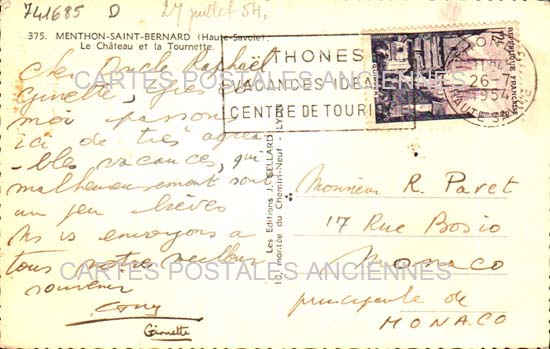 741685 D
27 juillet 54.
375. MENTHON-SAINT-BERNARD (Haute-Savoie)
Le Château et la Tournette.
Cher Oncle Raphaël
Ginette, et
moi passons
ici de très agréa-
-bles vacances, qui
malheureusement sont
un peu brèves
Ns vs envoyons à
tous notre meilleur
souvenir
Guy
Ginette
Les Editions J. CELLARD
101 montée du Chemin-Neuf - LYON
THONES
VACANCES IDEA
CENTRE DE TOURI
26-7
1954
REPUBLIQUE FRANÇAISE
Monsieur R. Paret
17 Rue Bosio
Monaco
principauté de
MONACO
CARTES POSTALES ANCIENNES
CARTES POSTALES ANCIENNES